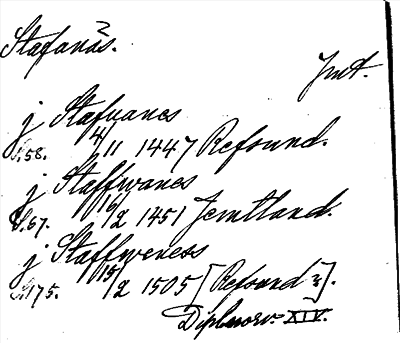 Stafanäs.
Jmt.
j Stafuanes
S.58. 4/11 1447 Refsund.
j Staffwanes
S.67. 16/2 1451 Jemtland.
j Staffweness
S.175. 15/2 1505 [Refsund].
Diplnorv. XIV.